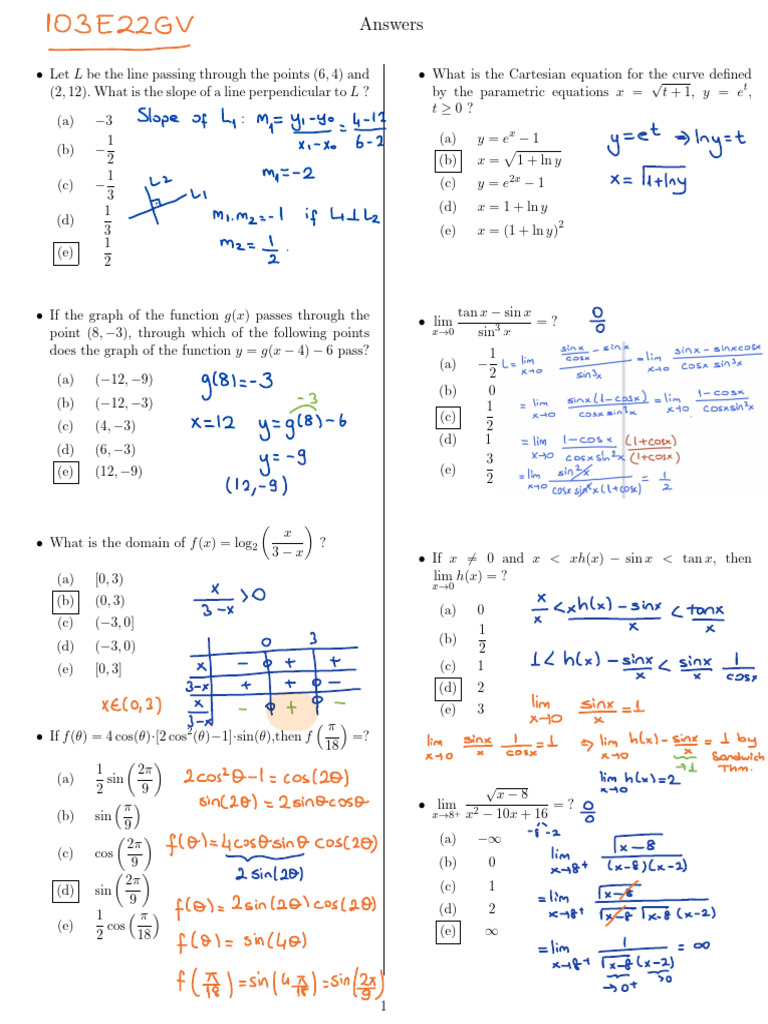 103E22GV
Answers
• Let L be the line passing through the points (6, 4) and
(2, 12). What is the slope of a line perpendicular to L ?
(a) −3
(b) −1/2
(c) −1/3
(d) 1/3
(e) 1/2
Slope of L₁: m₁ = (y₁−y₀)/(x₁−x₀) = (4−12)/(6−2)
m₁=−2
L2
L1
m₁.m₂=−1 if L₁⊥L₂
m₂=1/2.
• If the graph of the function g(x) passes through the
point (8, −3), through which of the following points
does the graph of the function y = g(x − 4) − 6 pass?
(a) (−12, −9)
(b) (−12, −3)
(c) (4, −3)
(d) (6, −3)
(e) (12, −9)
g(8)=−3
−3
x=12 y=g(8)−6
y=−9
(12,−9)
• What is the domain of f(x) = log₂(x/(3 − x)) ?
(a) [0, 3)
(b) (0, 3)
(c) (−3, 0]
(d) (−3, 0)
(e) [0, 3]
x/(3−x) >0
0 3
x − 0 + +
3−x + + 0 −
x/(3−x) − 0 + 0 −
x∈(0,3)
• If f(θ) = 4 cos(θ)·[2 cos²(θ)−1]·sin(θ),then f(π/18) =?
(a) 1/2 sin(2π/9)
(b) sin(π/9)
(c) cos(2π/9)
(d) sin(2π/9)
(e) 1/2 cos(π/18)
2cos²θ−1=cos(2θ)
sin(2θ)=2sinθcosθ
f(θ)=4cosθ.sinθ cos(2θ)
2sin(2θ)
f(θ)=2sin(2θ)cos(2θ)
f(θ)=sin(4θ)
f(π/18)=sin(4π/18)=sin(2π/9)
• What is the Cartesian equation for the curve defined
by the parametric equations x = √(t + 1), y = eᵗ,
t ≥ 0 ?
(a) y = eˣ − 1
(b) x = √(1 + ln y)
(c) y = e²ˣ − 1
(d) x = 1 + ln y
(e) x = (1 + ln y)²
y=eᵗ ⇒ lny=t
x=√(1+lny)
• lim x→0 (tan x − sin x)/(sin³ x) = ?
0/0
(a) −1/2
(b) 0
(c) 1/2
(d) 1
(e) 3/2
L= lim x→0 (sinx/cosx − sinx)/(sin³x) = lim x→0 (sinx−sinxcosx)/(cosx sin³x)
= lim x→0 sinx(1−cosx)/(cosx sin³x) = lim x→0 (1−cosx)/(cosxsin²x)
= lim x→0 (1−cosx)/(cosx sin²x) (1+cosx)/(1+cosx)
= lim x→0 sin²x/(cosx sin²x(1+cosx)) = 1/2
• If x ≠ 0 and x < xh(x) − sin x < tan x, then
lim x→0 h(x) = ?
(a) 0
(b) 1/2
(c) 1
(d) 2
(e) 3
x/x < (xh(x)−sinx)/x < tanx/x
1< h(x)−sinx/x < sinx/x 1/cosx
lim x→0 sinx/x =1
lim x→0 sinx/x 1/cosx =1 ⇒ lim x→0 h(x)−sinx/x = 1 by
→1
Sandwich
Thm.
lim x→0 h(x)=2
• lim x→8+ √(x − 8)/(x² − 10x + 16) = ?
0/0
−8 −2
(a) −∞
(b) 0
(c) 1
(d) 2
(e) ∞
lim x→8⁺ √(x−8)/((x−8)(x−2))
= lim x→8⁺ √(x−8)/(√(x−8) √(x−8) (x−2))
= lim x→8⁺ 1/(√(x−8)(x−2)) = ∞
→0⁺ >0
1